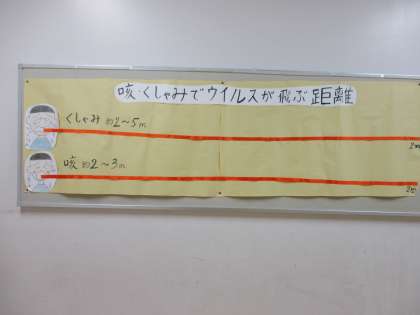 咳・くしゃみでウイルスが飛ぶ距離
くしゃみ 約2～5m
2m
咳 約2～3m
2m